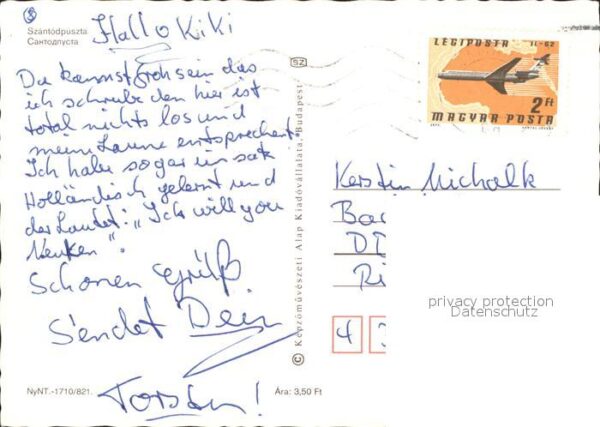 Szántódpuszta
Сантодпуста
Hallo Kiki
Du kannst froh sein das
ich schreibe den hier ist
total nichts los und
meine Laune entsprechend.
Ich habe sogar ein satz
Holländisch gelernt und
der Lautet: „Ick will you
Neuken".
Schönen Grüß
Sendet Dein
Torsten!
NyNT.-1710/821.
Ára: 3,50 Ft
SZ
© Képzőművészeti Alap Kiadóvállalata, Budapest
LÉGIPOSTA IL-62
2 Ft
MAGYAR POSTA
Kerstin Michalk
Bac
D
Ri
4
privacy protection
Datenschutz